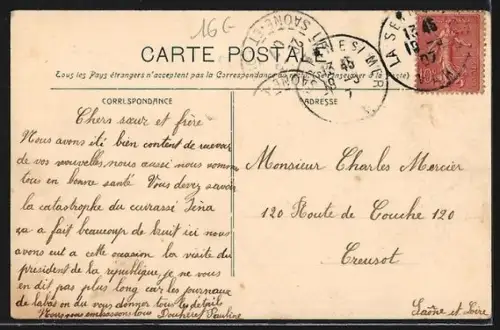 16€
CARTE POSTALE
Tous les Pays étrangers n'acceptent pas la Correspondance au (se renseigner à la Poste)
CORRESPONDANCE
ADRESSE
Chers sœur et frère
Nous avons été bien content de
de vos nouvelles, nous aussi nous
tous en bonne santé Vous devez savoir
la catastrophe du cuirassé Iéna
ça a fait beaucoup de bruit ici nous
avons eut a cette ocasion la visite du
président de la republique, je ne vous
en dit pas plus long car les journaux
de labas on du vous donner tous les détails
Nous vous embrassons tous Pauline
Monsieur Charles Mercier
120 Route de Couche 120
Creusot
Saône et Loire
LA SE
13 45
19 -3
07
LA SEYNE S/ MER
13 45
3
7
SAONE-ET-L